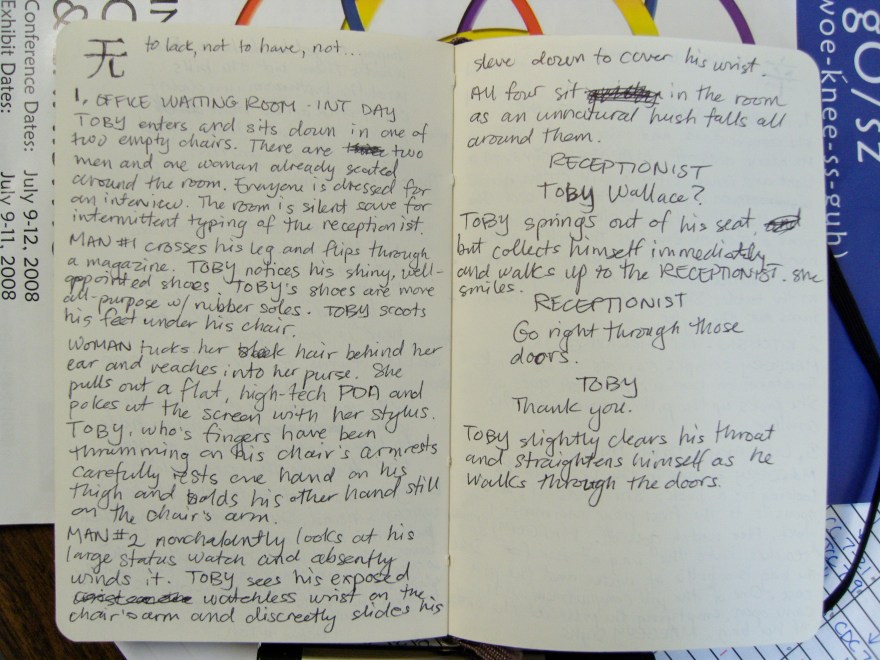 无 to lack, not to have, not...
1, OFFICE WAITING ROOM - INT DAY
TOBY enters and sits down in one of
two empty chairs. There are two
men and one woman already seated
around the room. Everyone is dressed for
an interview. The room is silent save for
intermittent typing of the receptionist.
MAN #1 crosses his leg and flips through
a magazine. TOBY notices his shiny, well-
appointed shoes. TOBY's shoes are more
all-purpose w/ rubber soles. TOBY scoots
his feet under his chair.
WOMAN tucks her hair behind her
ear and reaches into her purse. She
pulls out a flat, high-tech PDA and
pokes at the screen with her stylus.
TOBY, who's fingers have been
thrumming on his chair's armrests
carefully rests one hand on his
thigh and holds his other hand still
on the chair's arm.
MAN #2 nonchalantly looks at his
large status watch and absently
winds it. TOBY sees his exposed
watchless wrist on the
chair's arm and discreetly slides his
sleve down to cover his wrist.
All four sit in the room
as an unnatural hush falls all
around them.
RECEPTIONIST
TOBY Wallace?
TOBY springs out of his seat,
but collects himself immediately
and walks up to the RECEPTIONIST. She
smiles.
RECEPTIONIST
Go right through those
doors.
TOBY
Thank you.
TOBY slightly clears his throat
and straightens himself as he
walks through the doors.
Conference Dates: July 9-12, 2008
Exhibit Dates: July 9-11, 2008
go/sz
woe-knee-ss-guh)